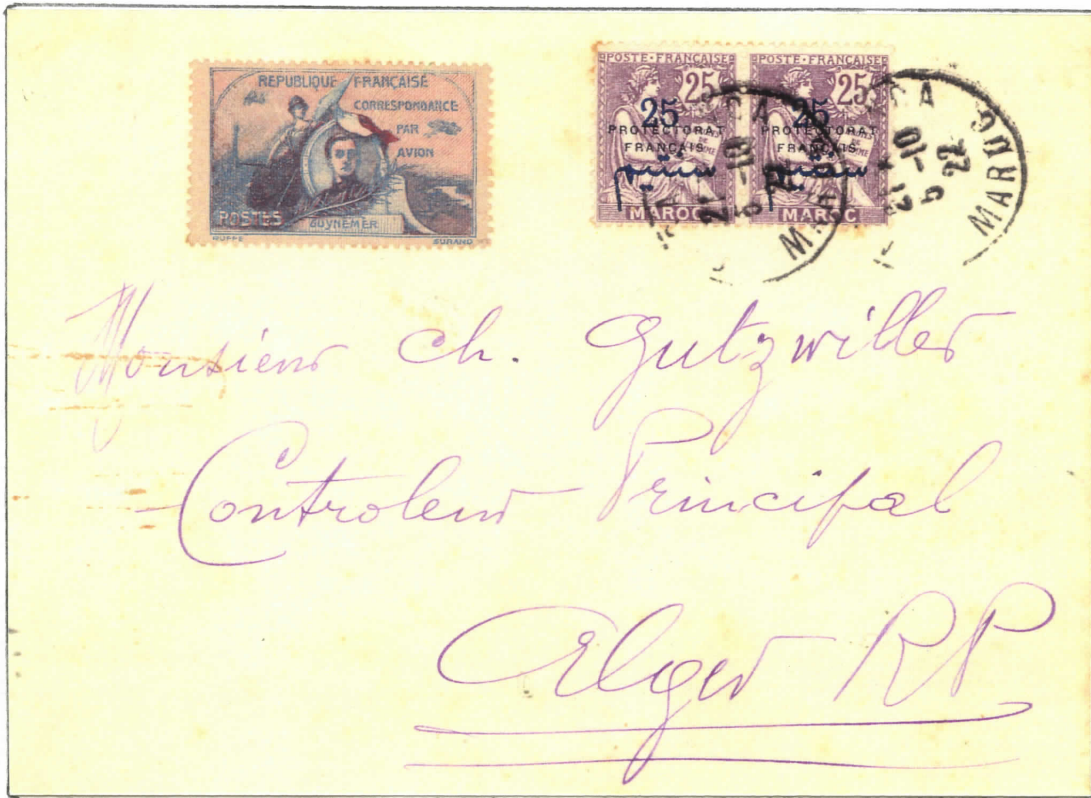 REPUBLIQUE FRANÇAISE
CORRESPONDANCE
PAR
AVION
POSTES
GUYNEMER
RUFFE
POSTE·FRANÇAISE
25
25
PROTECTORAT
FRANÇAIS
MAROC
POSTE·FRANÇAISE
25
25
PROTECTORAT
FRANÇAIS
MAROC
MAROC
21
-10
5
22
MAROC
Monsieur Ch. Gutzwiller
Controleur Principal
Alger RP